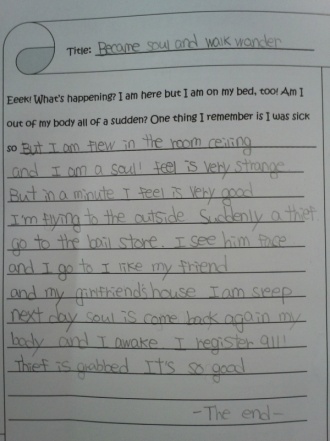 Title: Became soul and walk wander
Eeek! What's happening? I am here but I am on my bed, too! Am I
out of my body all of a sudden? One thing I remember is I was sick
so But I am flew in the room ceiling
and I am a soul! feel is very strange
But in a minute I feel is very good
I'm flying to the outside Suddenly a thief
go to the ball store. I see him face
and I go to I like my friend
and my girlfriend's house I am sreep
next day soul is come back again my
body and I awake I register 911!
Thief is grabbed It's so good
-The end-